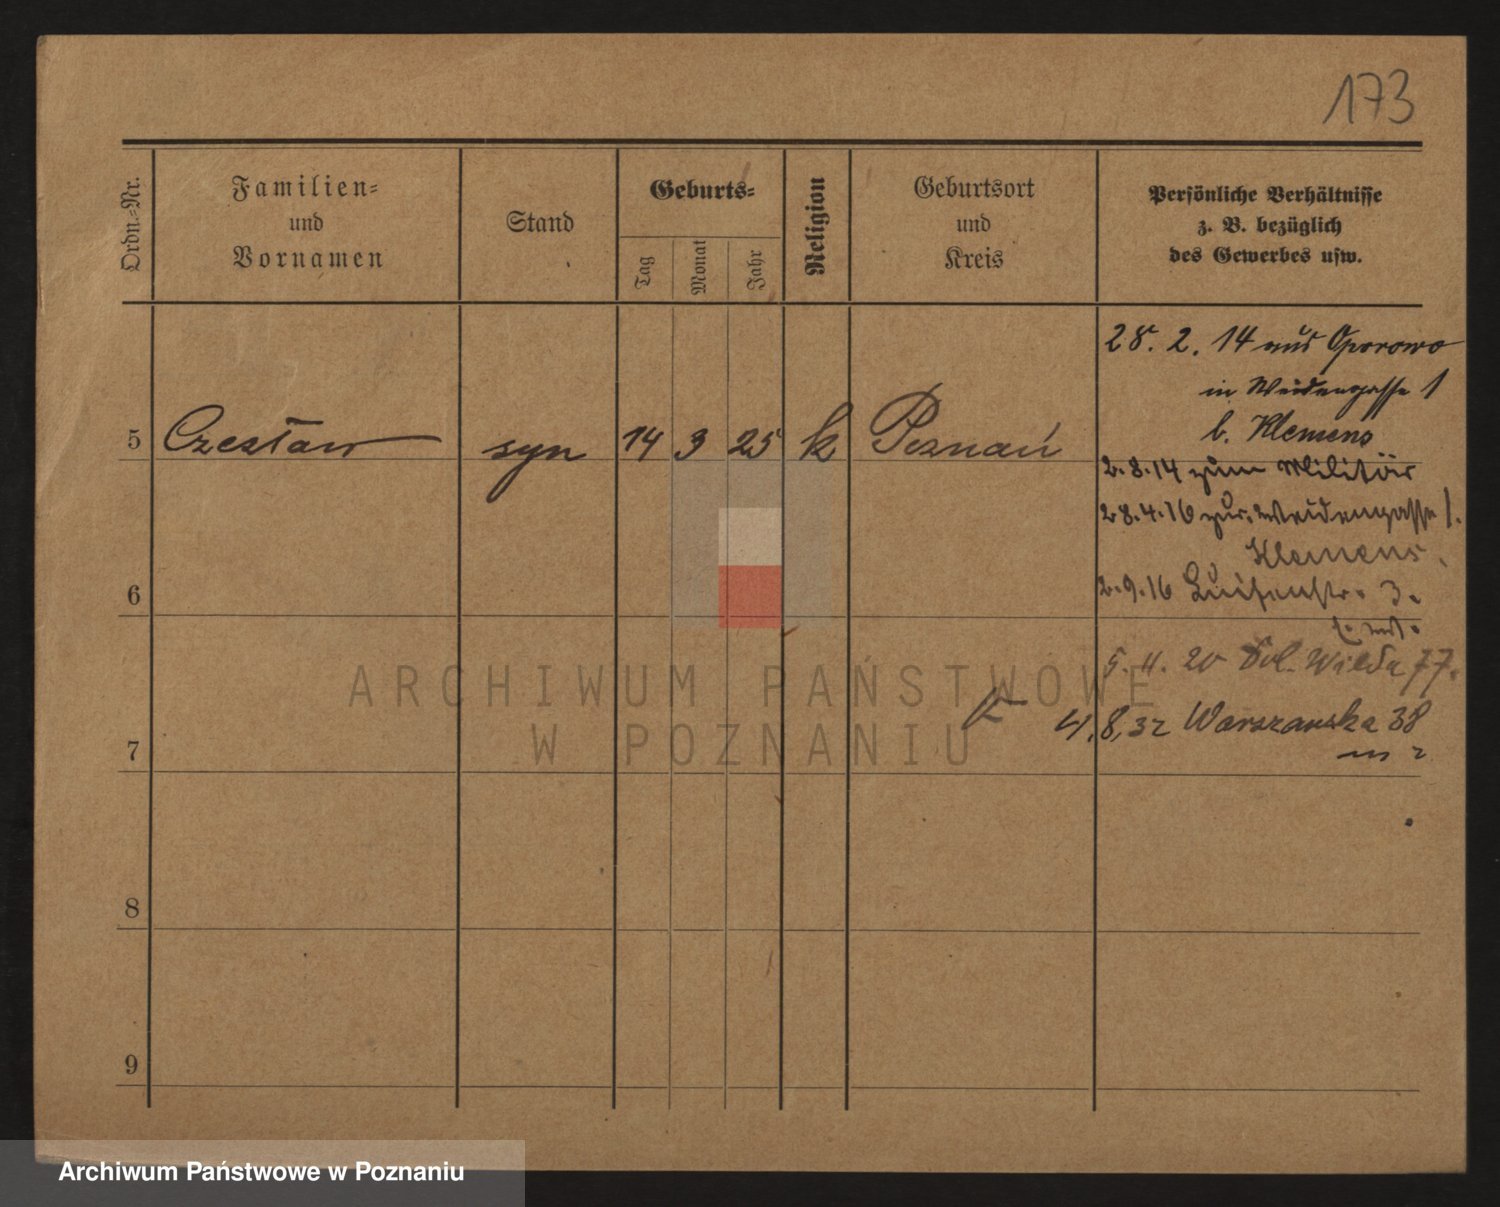 173
Ordn.-Nr.
Familien-
und
Vornamen
Stand
Geburts-
Tag
Monat
Jahr
Religion
Geburtsort
und
Kreis
Persönliche Verhältnisse
z. B. bezüglich
des Gewerbes usw.
28. 2. 14 aus Oporowo
in Weidengasse 1
b. Klemens
5 Czesław syn 14 3 25 k Poznań
2.8.14 zum Militär
28.4.16 zur. Weidengasse 1.
Klemens
6
2.9.16 Luisenstr. 3.
5. 11. 20 Wilda 77.
4.8.32 Warszawska 38
m 2
7
8
9
ARCHIWUM PAŃSTWOWE
W POZNANIU
Archiwum Państwowe w Poznaniu